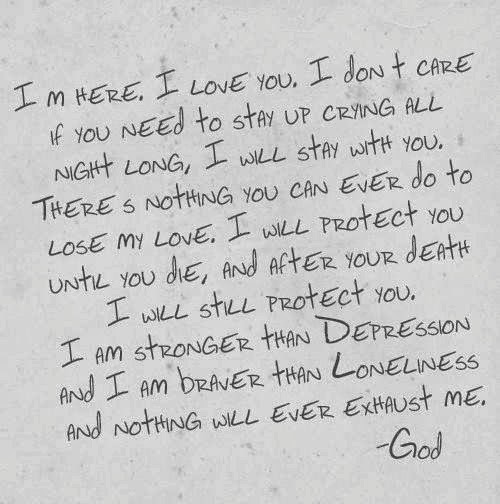 I m HERE. I LOVE YOU. I don t CARE
if YOU NEEd to stAY UP CRYING ALL
NIGHt LONG, I WILL StAY WitH YOU.
THERE s NOtHING YOU CAN EVER do to
LOSE MY LOVE. I WILL PROtECt YOU
UNtiL YOU diE, ANd AFtER YOUR dEAtH
I WiLL StiLL PROtECt YOU.
I AM StRONGER tHAN DEPRESSION
ANd I AM bRAVER tHAN LONELINESS
ANd NOtHING WILL EVER EXHAUSt ME.
-God